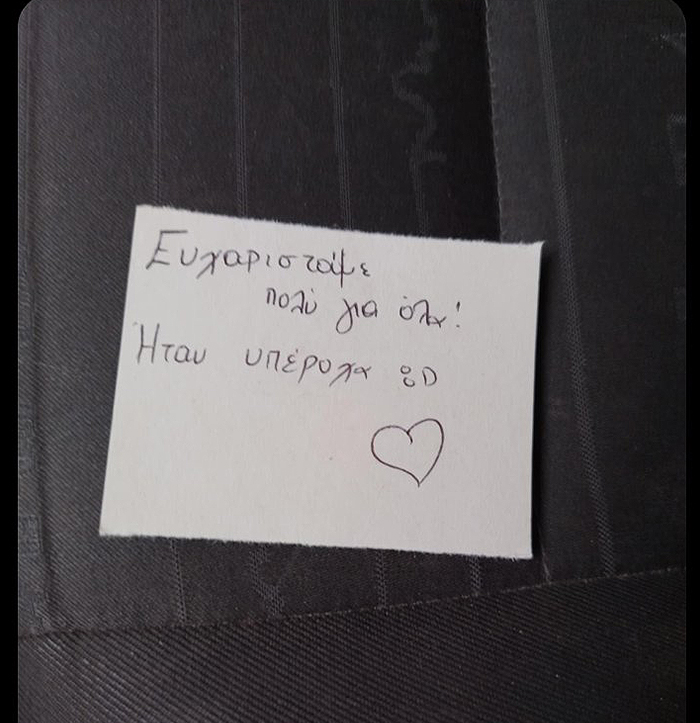 Ευχαριστάμε
πολύ για όλα!
Ήταν υπέροχα :D